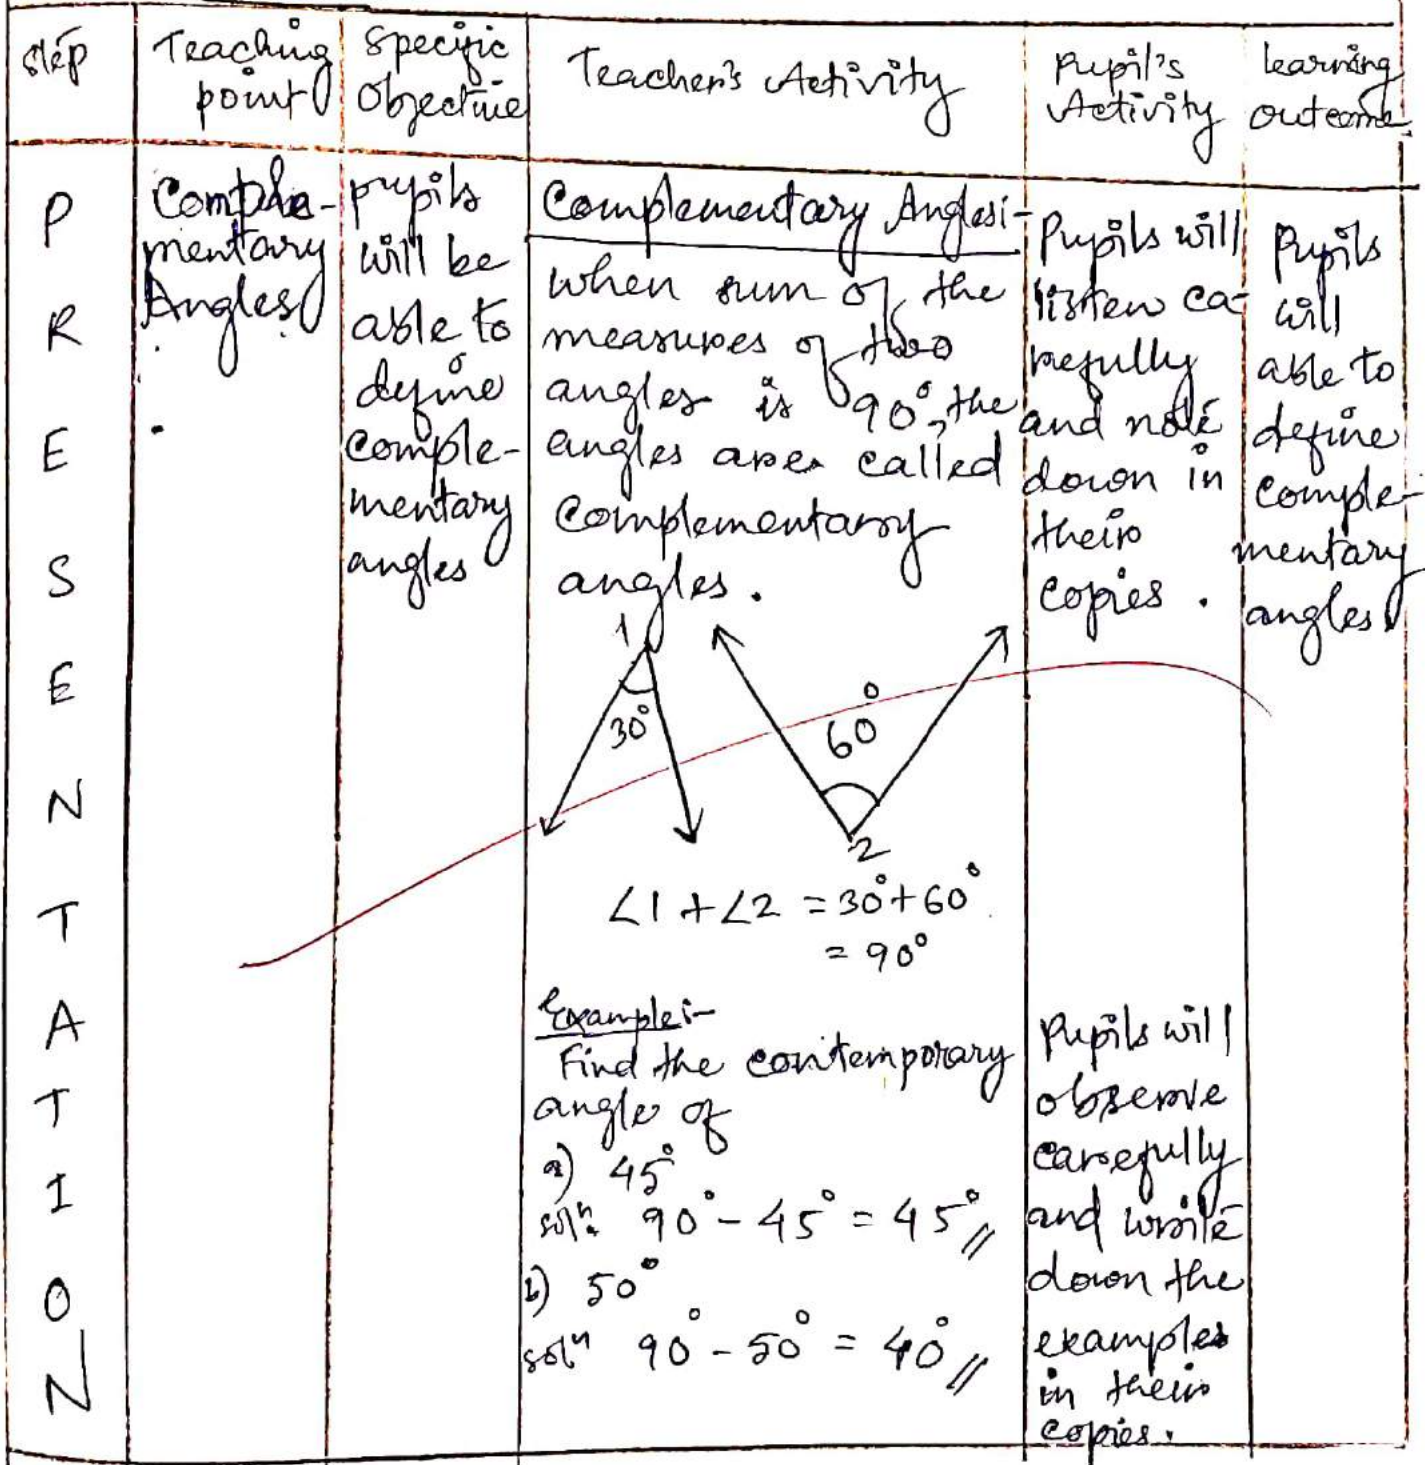 Step
Teaching
point
Specific
Objective
Teacher's Activity
Pupil's
Activity
learning
outcome
P
R
E
S
E
N
T
A
T
I
O
N
Comple-
mentary
Angles
pupils
will be
able to
define
comple-
mentary
angles
Complementary Angles:-
when sum of the
measures of two
angles is 90°, the
angles are called
Complementary
angles.
1
30°
60°
2
∠1 + ∠2 = 30° + 60°
= 90°
Example:-
Find the contemporary
angle of
a) 45°
solⁿ. 90° - 45° = 45°//
b) 50°
solⁿ 90° - 50° = 40°//
Pupils will
listen ca-
refully
and note
down in
their
copies.
Pupils will
observe
carefully
and write
down the
examples
in their
copies.
Pupils
will
able to
define
comple-
mentary
angles